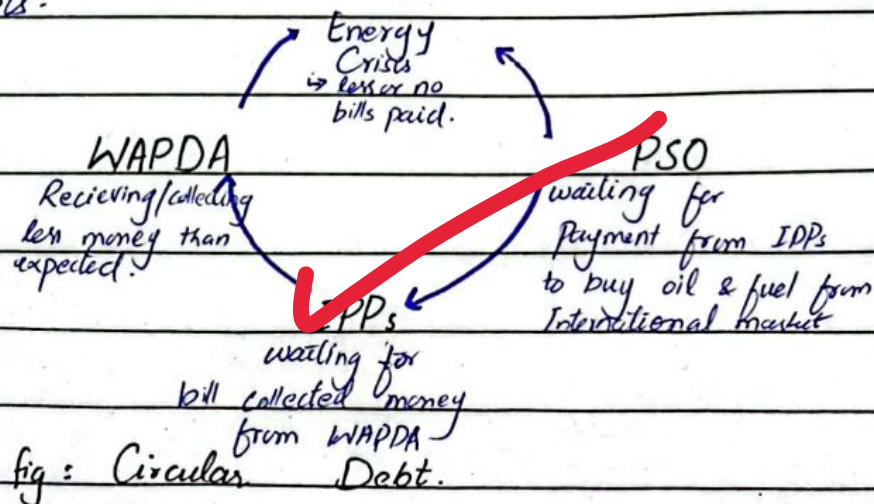 Energy
Crisis
→ less or no
bills paid.
WAPDA
Recieving/collecting
less money than
expected.
PSO
waiting for
Payment from IDPs
to buy oil & fuel from
International market
IPPs
waiting for
bill collected money
from WAPDA
fig: Circular Debt.